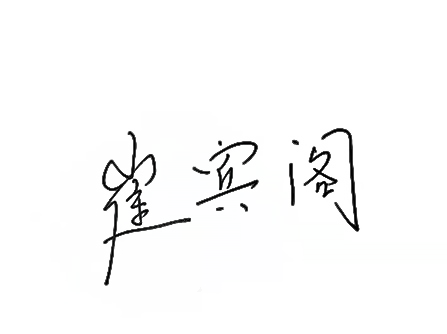 崔宾阁